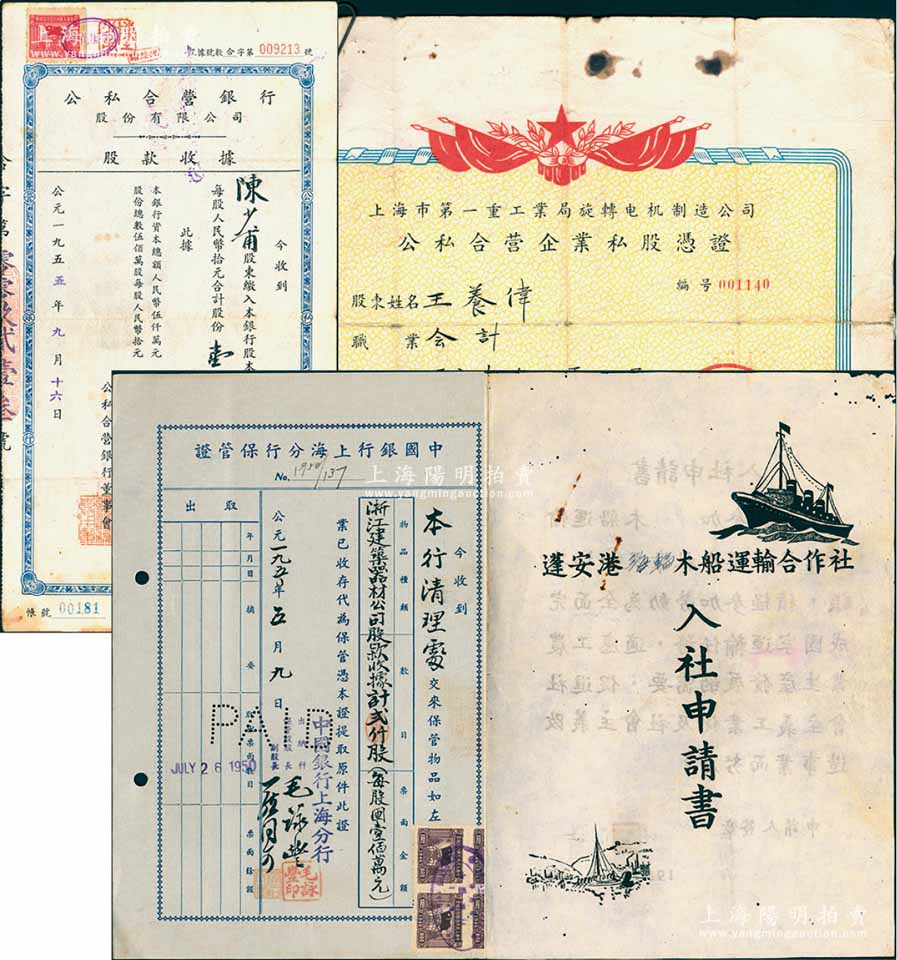 上海陽明拍賣
www.yangmingauction.com
收據號數合字第 009213 號
公私合營銀行
股份有限公司
股款收據
今收到
陳少甫股東繳入本銀行股本
每股人民幣拾元合計股份壹
此據
本銀行資本總額人民幣伍仟萬元
股份總數伍佰萬股每股人民幣拾元
公元一九五五年九月十六日
公私合營銀行董事會
合字第零零玖貳壹叁號
帳號 00181
上海市第一重工業局旋轉电机制造公司
公私合营企業私股憑證
編号 001140
股東姓名 王養偉
職業 会計
上海陽明拍賣
www.yangmingauction.com
中國銀行上海分行保管證
No. 1950/137
今收到
本行清理處交來保管物品如左
物品種類 數目 票面金額
浙江建築器材公司股款收據計弍仟股(每股國壹佰萬元)
業已收存代為保管憑本證提取原件此證
公元一九五〇年五月九日
中國銀行上海分行
出納科
副股長
毛詠豐
毛詠豐印
取出
年月日 摘要 取出票面數目 票面餘額
PAID
JULY 26 1950
蓬安港 木船運輸合作社
入社申請書
入社申請書
上海陽明拍賣
www.yangmingauction.com